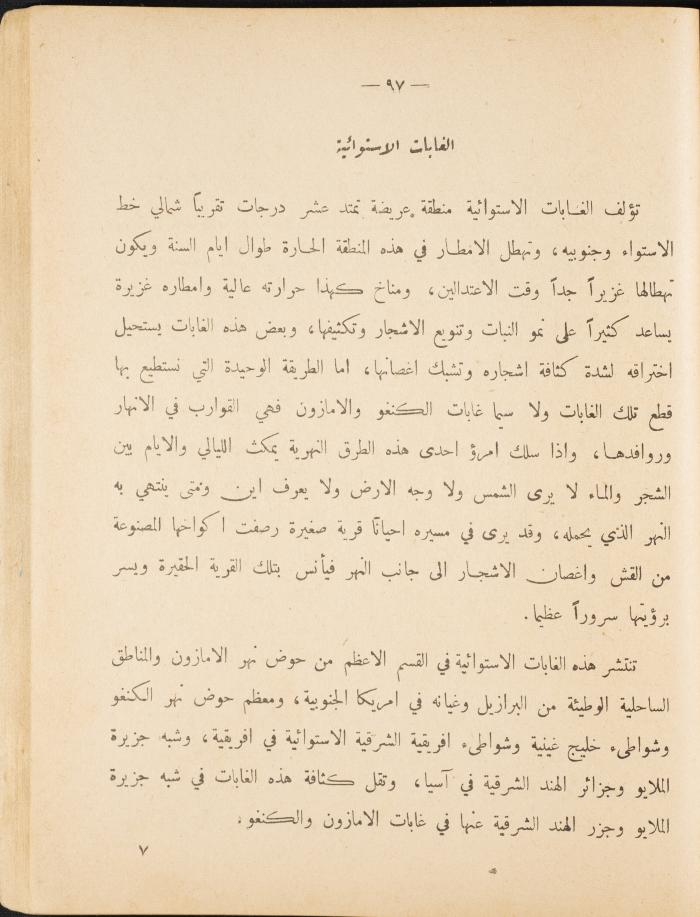 — ٩٧ —
الغابات الاستوائية
تؤلف الغابات الاستوائية منطقة عريضة تمتد عشر درجات تقريباً شمالي خط
الاستواء وجنوبيه، وتهطل الامطار في هذه المنطقة الحارة طوال ايام السنة ويكون
تهطالها غزيراً جداً وقت الاعتدالين، ومناخ كهذا حرارته عالية وامطاره غزيرة
يساعد كثيراً على نمو النبات وتنويع الاشجار وتكثيفها، وبعض هذه الغابات يستحيل
اختراقه لشدة كثافة اشجاره وتشبك اغصانها، اما الطريقة الوحيدة التي نستطيع بها
قطع تلك الغابات ولا سيما غابات الكنغو والامازون فهي القوارب في الانهار
وروافدها، واذا سلك امرؤ احدى هذه الطرق النهرية يمكث الليالي والايام بين
الشجر والماء لا يرى الشمس ولا وجه الارض ولا يعرف اين ومتى ينتهي به
النهر الذي يحمله، وقد يرى في مسيره احياناً قرية صغيرة رصفت اكواخها المصنوعة
من القش واغصان الاشجار الى جانب النهر فيأنس بتلك القرية الحقيرة ويسر
برؤيتها سروراً عظيما.
تنتشر هذه الغابات الاستوائية في القسم الاعظم من حوض نهر الامازون والمناطق
الساحلية الوطيئة من البرازيل وغيانه في امريكا الجنوبية، ومعظم حوض نهر الكنغو
وشواطىء خليج غينية وشواطىء افريقية الشرقية الاستوائية في افريقية، وشبه جزيرة
الملايو وجزائر الهند الشرقية في آسيا، وتقل كثافة هذه الغابات في شبه جزيرة
الملايو وجزر الهند الشرقية عنها في غابات الامازون والكنغو.
٧